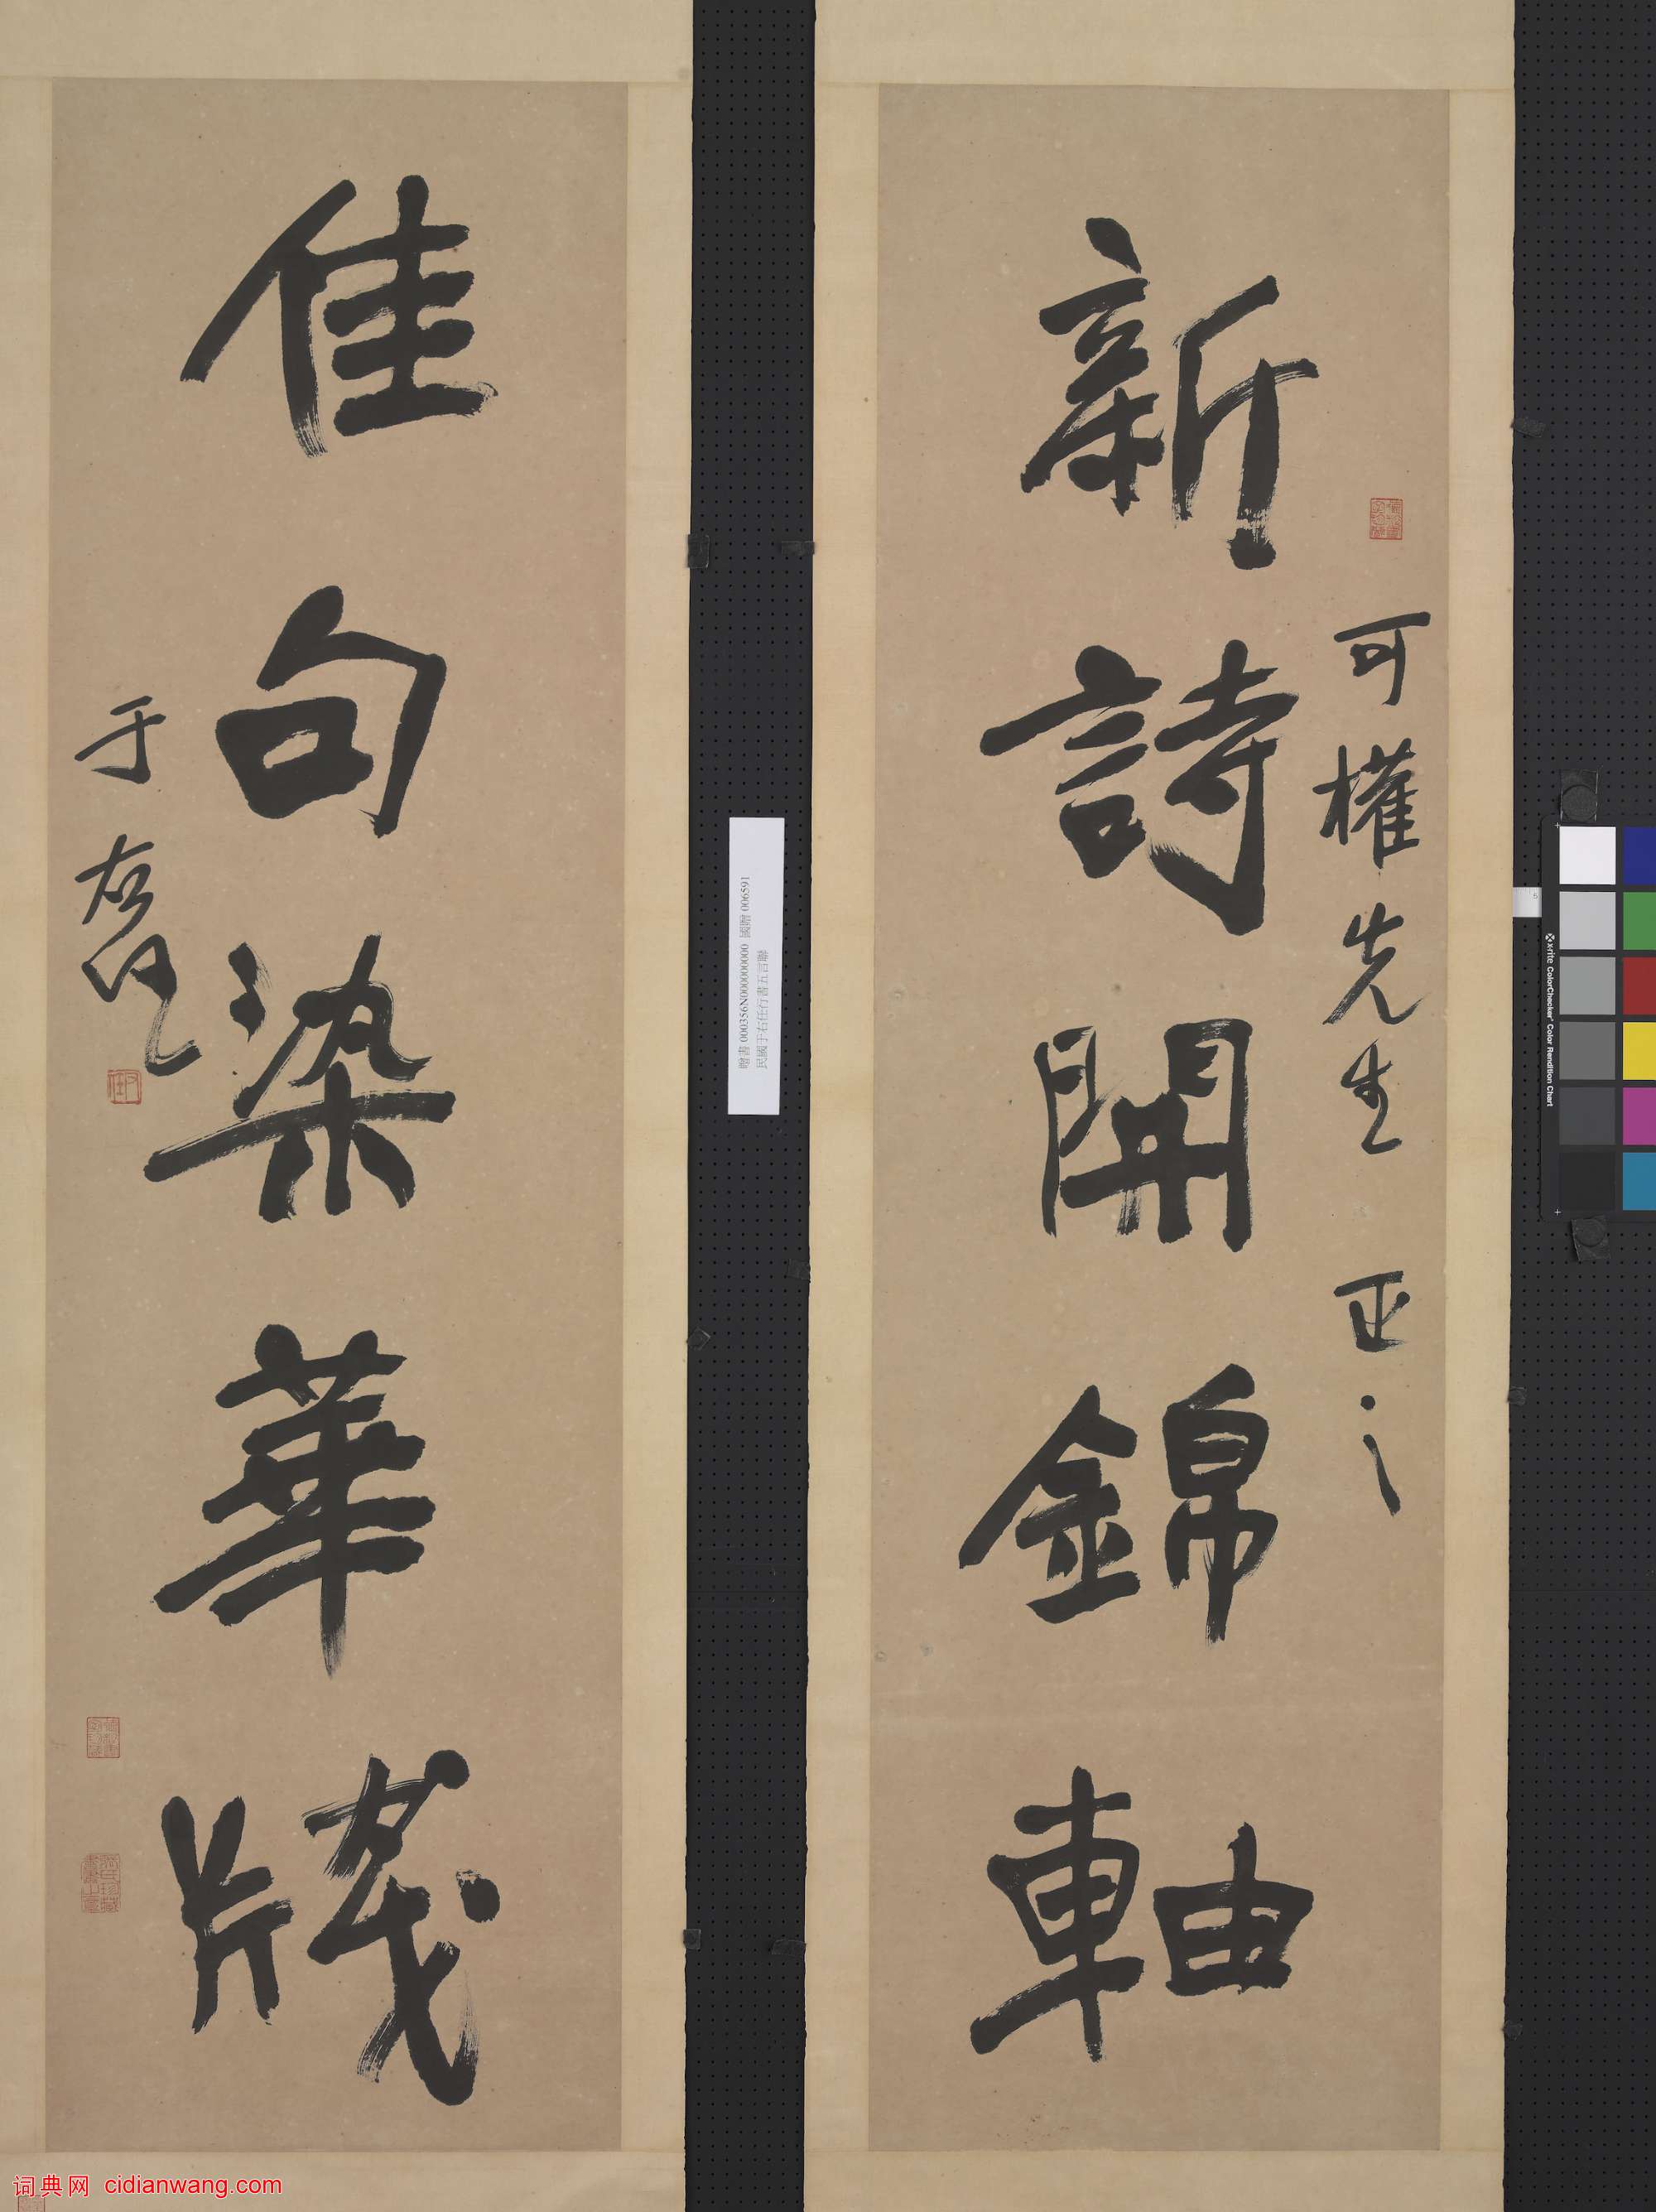 新詩開錦軸
可權先生 正之
佳句染華牋
于右任
贈書 000356N000000000 國贈 006591
民國于右任行書五言聯
x-rite ColorChecker Color Rendition Chart
词典网 cidianwang.com